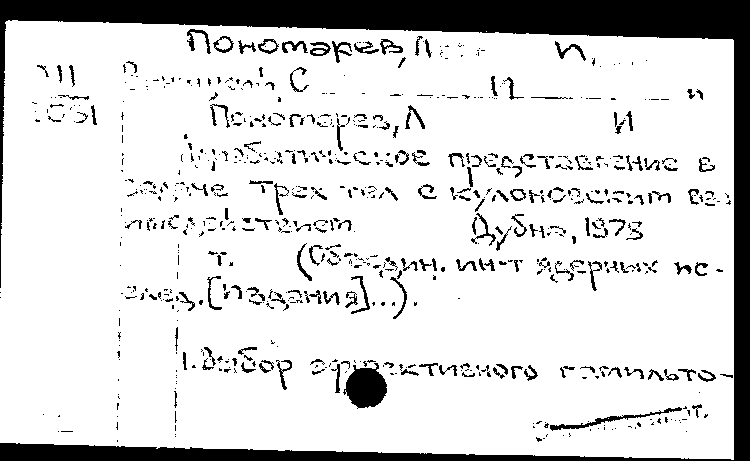 Пономарев, Л И.
VII С И и
1051 Пономарев, Л И
Адиабатическое представление в
задаче трех тел с кулоновским вза-
имодействием Дубна, 1978
т. (Объедин. ин-т ядерных ис-
след. [Издания]...).
1. Выбор эффективного гамильто-